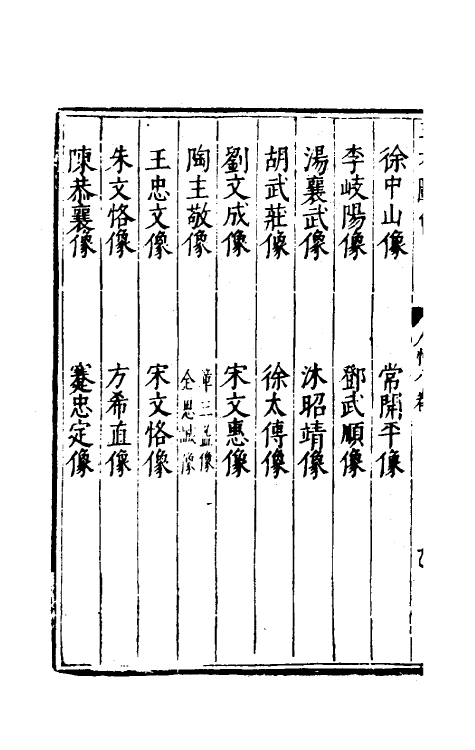 徐中山像 常開平像
李岐陽像 鄧武順像
湯襄武像 沐昭靖像
胡武莊像 徐太傅像
劉文成像 宋文惠像
陶主敬像 章三益像
全思誠像
王忠文像 宋文恪像
朱文恪像 方希直像
陳恭襄像 蹇忠定像